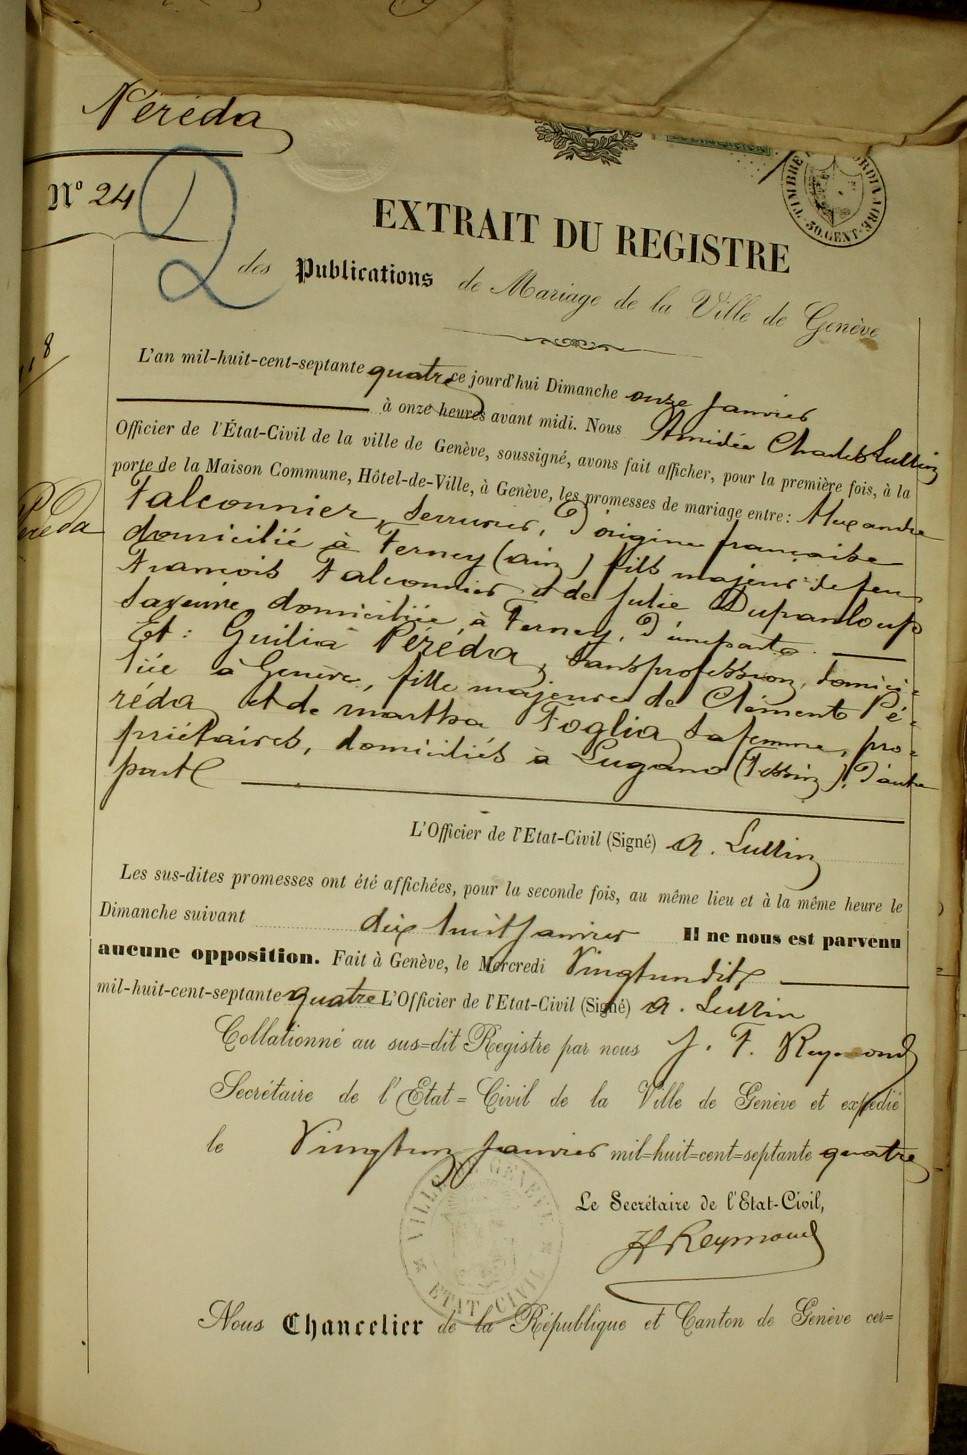 Péréda
Nº 24
TIMBRE ORDINAIRE 50. CENT.
EXTRAIT DU REGISTRE
des Publications de Mariage de la Ville de Genève
8
L'an mil-huit-cent-septante quatre ce jourd'hui Dimanche onze janvier
à onze heures avant midi. Nous Amédée Charles Lullin
Officier de l'État-Civil de la ville de Genève, soussigné, avons fait afficher, pour la première fois, à la
porte de la Maison Commune, Hôtel-de-Ville, à Genève, les promesses de mariage entre: Alexandre
Péréda
Falconnier, serrurier, d'origine française
domicilié à Ferney (ain) fils majeur de feu
François Falconnier et de Julie Dupanloup
sa veuve domiciliée à Ferney, d'une part.
Et: Guilia Péréda, sans profession, domici-
liée à Genève, fille majeure de Clément Pé-
réda et de martha Foglia sa femme, pro-
priétaires, domiciliés à Lugano (Tessin), d'autre
part
L'Officier de l'Etat-Civil (Signé) A. Lullin
Les sus-dites promesses ont été affichées, pour la seconde fois, au même lieu et à la même heure le
Dimanche suivant dix huit janvier Il ne nous est parvenu
aucune opposition. Fait à Genève, le Mercredi Vingt un dit
mil-huit-cent-septante quatre L'Officier de l'Etat-Civil (Signé) A. Lullin
Collationné au sus=dit Registre par nous J. F. Reymond
Secrétaire de l'Etat=Civil de la Ville de Genève et expédié
le Vingt un janvier mil=huit=cent=septante quatre
VILLE DE GENÈVE ETAT CIVIL
Le Secrétaire de l'Etat-Civil,
JF Reymond
Nous Chancelier de la République et Canton de Genève cer=